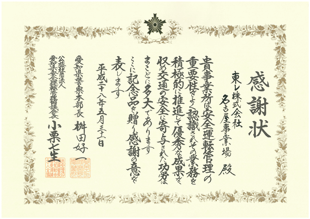 感謝状
東レ株式会社
名古屋事業場 殿
貴事業所は安全運転管理の
重要性をよく認識されその業務を
積極的に推進して優秀な成果を
収め交通の安全に寄与された功労は
まことに多大であります
ここに記念品を贈り感謝の意を
表します
平成二十八年五月三十一日
愛知県警察本部長 桝田好一
公益財団法人